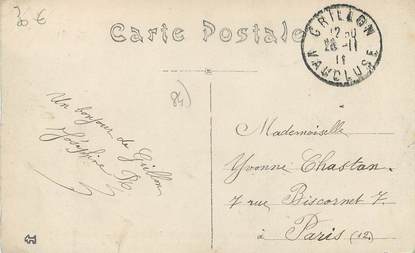 30 €
Carte Postale
GRILLON
12 30
26 - 11
11
VAUCLUSE
84
Un bonjour de Grillon
Joséphine R
Mademoiselle
Yvonne Chastan.
7 rue Biscornet 7.
à Paris (12)